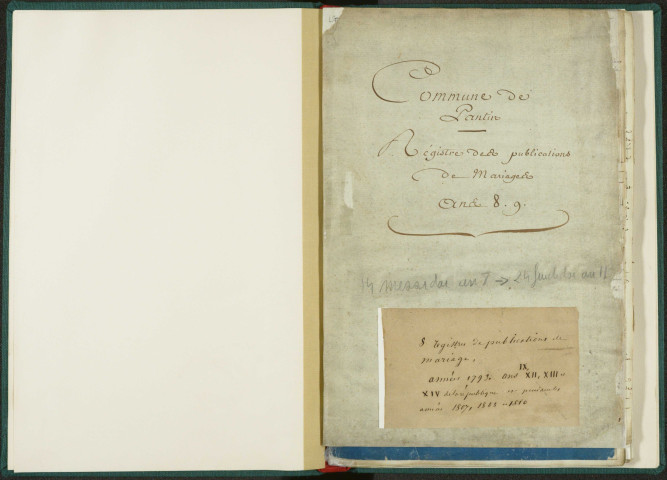 Commune de
Pantin
Régistre des publications
de Mariages
Ans 8. 9.
14 messidor an 7 → 24
8 registres de publications de
mariage,
IX,
années 1793. ans XII, XIII et
XIV de la république et pendant les
années 1807, 1808 et